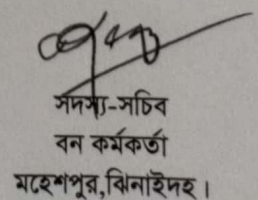 সদস্য-সচিব
বন কর্মকর্তা
মহেশপুর,ঝিনাইদহ।